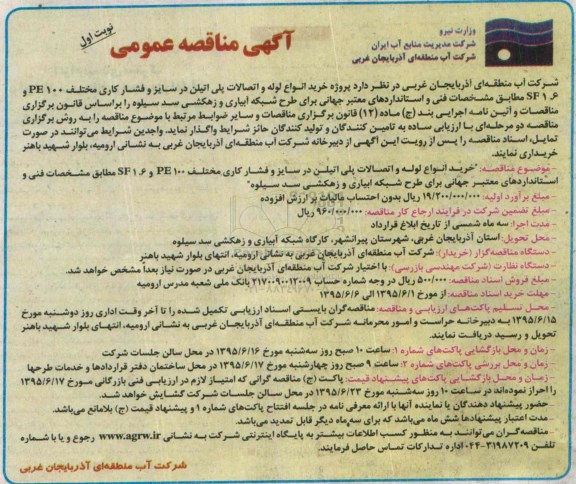 وزارت نیرو
شرکت مدیریت منابع آب ایران
شرکت آب منطقه‌ای آذربایجان غربی
آگهی مناقصه عمومی
نوبت اول
شرکت آب منطقه‌ای آذربایجان غربی در نظر دارد پروژه خرید انواع لوله و اتصالات پلی اتیلن در سایز و فشار کاری مختلف PE ۱۰۰ و
SF ۱.۶ مطابق مشخصات فنی و استانداردهای معتبر جهانی برای طرح شبکه آبیاری و زهکشی سد سیلوه را براساس قانون برگزاری
مناقصات و آئین نامه اجرایی بند (ج) ماده (۱۲) قانون برگزاری مناقصات و سایر ضوابط مرتبط با موضوع مناقصه را به روش برگزاری
مناقصه دو مرحله‌ای با ارزیابی ساده به تامین کنندگان و تولید کنندگان حائز شرایط واگذار نماید، واجدین شرایط می‌توانند در صورت
تمایل، اسناد مناقصه را پس از رویت این آگهی از دبیرخانه شرکت آب منطقه‌ای آذربایجان غربی به نشانی ارومیه، بلوار شهید باهنر
خریداری نمایند.
- موضوع مناقصه: "خرید انواع لوله و اتصالات پلی اتیلن در سایز و فشار کاری مختلف PE ۱۰۰ و SF ۱.۶ مطابق مشخصات فنی و
استانداردهای معتبر جهانی برای طرح شبکه آبیاری و زهکشی سد سیلوه"
- مبلغ برآورد اولیه: ۱۹/۲۰۰/۰۰۰/۰۰۰ ریال بدون احتساب مالیات بر ارزش افزوده
- مبلغ تضمین شرکت در فرآیند ارجاع کار مناقصه: ۹۶۰/۰۰۰/۰۰۰ ریال
- مدت اجرا: سه ماه شمسی از تاریخ ابلاغ قرارداد
- محل تحویل: استان آذربایجان غربی، شهرستان پیرانشهر، کارگاه شبکه آبیاری و زهکشی سد سیلوه
- دستگاه مناقصه‌گزار (خریدار): شرکت آب منطقه‌ای آذربایجان غربی به نشانی ارومیه، انتهای بلوار شهید باهنر
- دستگاه نظارت (شرکت مهندسی بازرسی): با اختیار شرکت آب منطقه‌ای آذربایجان غربی در صورت نیاز بعدا مشخص خواهد شد.
- مبلغ فروش اسناد مناقصه: ۵۰۰/۰۰۰ ریال در وجه شماره حساب ۲۱۷۰۰۹۰۰۱۲۰۰۹ بانک ملی شعبه مدرس ارومیه
- مهلت خرید اسناد مناقصه: از مورخ ۱۳۹۵/۶/۱ الی ۱۳۹۵/۶/۶
- محل تسلیم پاکت‌های ارزیابی و مناقصه: مناقصه‌گران بایستی اسناد ارزیابی تکمیل شده را تا آخر وقت اداری روز دوشنبه مورخ
۱۳۹۵/۶/۱۵ به دبیرخانه حراست و امور محرمانه شرکت آب منطقه‌ای آذربایجان غربی به نشانی ارومیه، انتهای بلوار شهید باهنر
تحویل و رسید دریافت نمایند.
- زمان و محل بازگشایی پاکت‌های شماره ۱: ساعت ۱۰ صبح روز سه‌شنبه مورخ ۱۳۹۵/۶/۱۶ در محل سالن جلسات شرکت
- زمان و محل بررسی پاکت‌های شماره ۲: ساعت ۹ صبح روز چهارشنبه مورخ ۱۳۹۵/۶/۱۷ در محل ساختمان دفتر قراردادها و خدمات طرحها
- زمان و محل بازگشایی پاکت‌های پیشنهاد قیمت: پاکت (ج) مناقصه گرانی که امتیاز لازم در ارزیابی فنی بازرگانی مورخ ۱۳۹۵/۶/۱۷
را احراز نموده‌اند در ساعت ۱۰ روز سه‌شنبه مورخ ۱۳۹۵/۶/۲۳ در محل سالن جلسات شرکت گشایش خواهد شد.
- حضور پیشنهاد دهندگان یا نماینده آنها با ارائه معرفی نامه در جلسه افتتاح پاکت‌های شماره ۱ و پیشنهاد قیمت (ج) بلامانع می‌باشد.
- مدت اعتبار پیشنهادها شش ماه می‌باشد که برای سه‌ماه دیگر قابل تمدید می‌باشد.
- مناقصه‌گران می‌توانند به منظور کسب اطلاعات بیشتر به پایگاه اینترنتی شرکت به نشانی www.agrw.ir رجوع و یا با شماره
تلفن ۳۱۹۸۷۲۰۹-۰۴۴ اداره تدارکات تماس حاصل فرمایند.
شرکت آب منطقه‌ای آذربایجان غربی